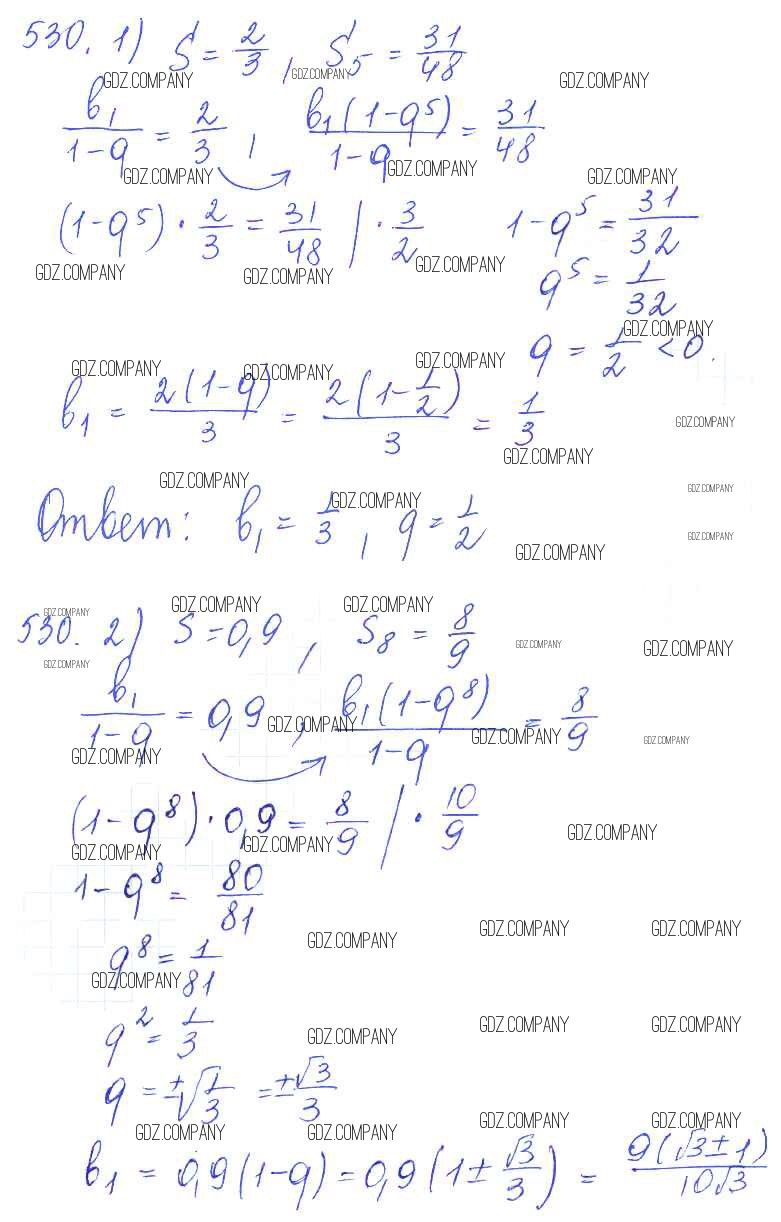 530. 1) S = 2/3, S₅ = 31/48
GDZ.COMPANY GDZ.COMPANY GDZ.COMPANY
b₁/(1-q) = 2/3, b₁(1-q⁵)/(1-q) = 31/48
GDZ.COMPANY GDZ.COMPANY GDZ.COMPANY
(1-q⁵) · 2/3 = 31/48 | · 3/2 1-q⁵ = 31/32
GDZ.COMPANY GDZ.COMPANY GDZ.COMPANY
q⁵ = 1/32
GDZ.COMPANY
q = 1/2 < 0.
GDZ.COMPANY GDZ.COMPANY GDZ.COMPANY
b₁ = 2(1-q)/3 = 2(1-1/2)/3 = 1/3
GDZ.COMPANY
GDZ.COMPANY
GDZ.COMPANY GDZ.COMPANY
GDZ.COMPANY
Ответ: b₁ = 1/3, q = 1/2
GDZ.COMPANY
GDZ.COMPANY
GDZ.COMPANY GDZ.COMPANY GDZ.COMPANY
530. 2) S = 0,9, S₈ = 8/9
GDZ.COMPANY GDZ.COMPANY
GDZ.COMPANY
b₁/(1-q) = 0,9, b₁(1-q⁸)/(1-q) = 8/9
GDZ.COMPANY GDZ.COMPANY GDZ.COMPANY
GDZ.COMPANY
(1-q⁸) · 0,9 = 8/9 | · 10/9
GDZ.COMPANY GDZ.COMPANY GDZ.COMPANY
1-q⁸ = 80/81
GDZ.COMPANY GDZ.COMPANY GDZ.COMPANY
q⁸ = 1/81
GDZ.COMPANY
q² = 1/3
GDZ.COMPANY GDZ.COMPANY GDZ.COMPANY
q = ±√(1/3) = ±√3/3
GDZ.COMPANY GDZ.COMPANY GDZ.COMPANY GDZ.COMPANY
b₁ = 0,9(1-q) = 0,9(1 ± √3/3) = 9(√3±1)/(10√3)